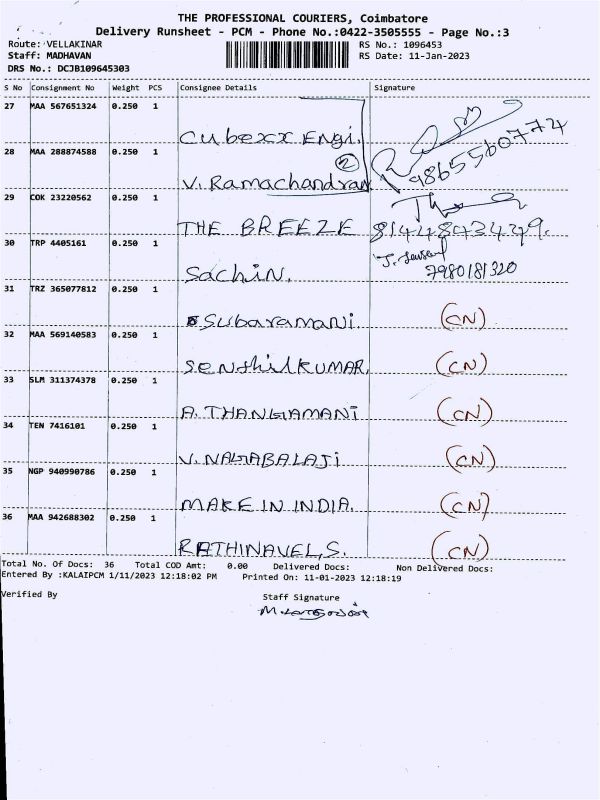 THE PROFESSIONAL COURIERS, Coimbatore
Delivery Runsheet - PCM - Phone No.:0422-3505555 - Page No.:3
Route: VELLAKINAR
RS No.: 1096453
Staff: MADHAVAN
RS Date: 11-Jan-2023
DRS No.: DCJB109645303
S No Consignment No Weight PCS Consignee Details Signature
27 MAA 567651324 0.250 1 Cubexx Engi.
28 MAA 288874588 0.250 1 V. Ramachandran 2 9865560774
29 COK 23220562 0.250 1 THE BREEZE 8144843479.
30 TRP 4405161 0.250 1 Sachin. 7980181320
31 TRZ 365077812 0.250 1 Subaramani. (CN)
32 MAA 569140583 0.250 1 SenthilKUMAR, (CN)
33 SLM 311374378 0.250 1 A. THANGAMANi (CN)
34 TEN 7416101 0.250 1 V. NAGABALAJi (CN)
35 NGP 940990786 0.250 1 MAKE IN INDIA. (CN)
36 MAA 942688302 0.250 1 RATHINAVEL, S. (CN)
Total No. Of Docs: 36 Total COD Amt: 0.00 Delivered Docs: Non Delivered Docs:
Entered By :KALAIPCM 1/11/2023 12:18:02 PM Printed On: 11-01-2023 12:18:19
Verified By Staff Signature